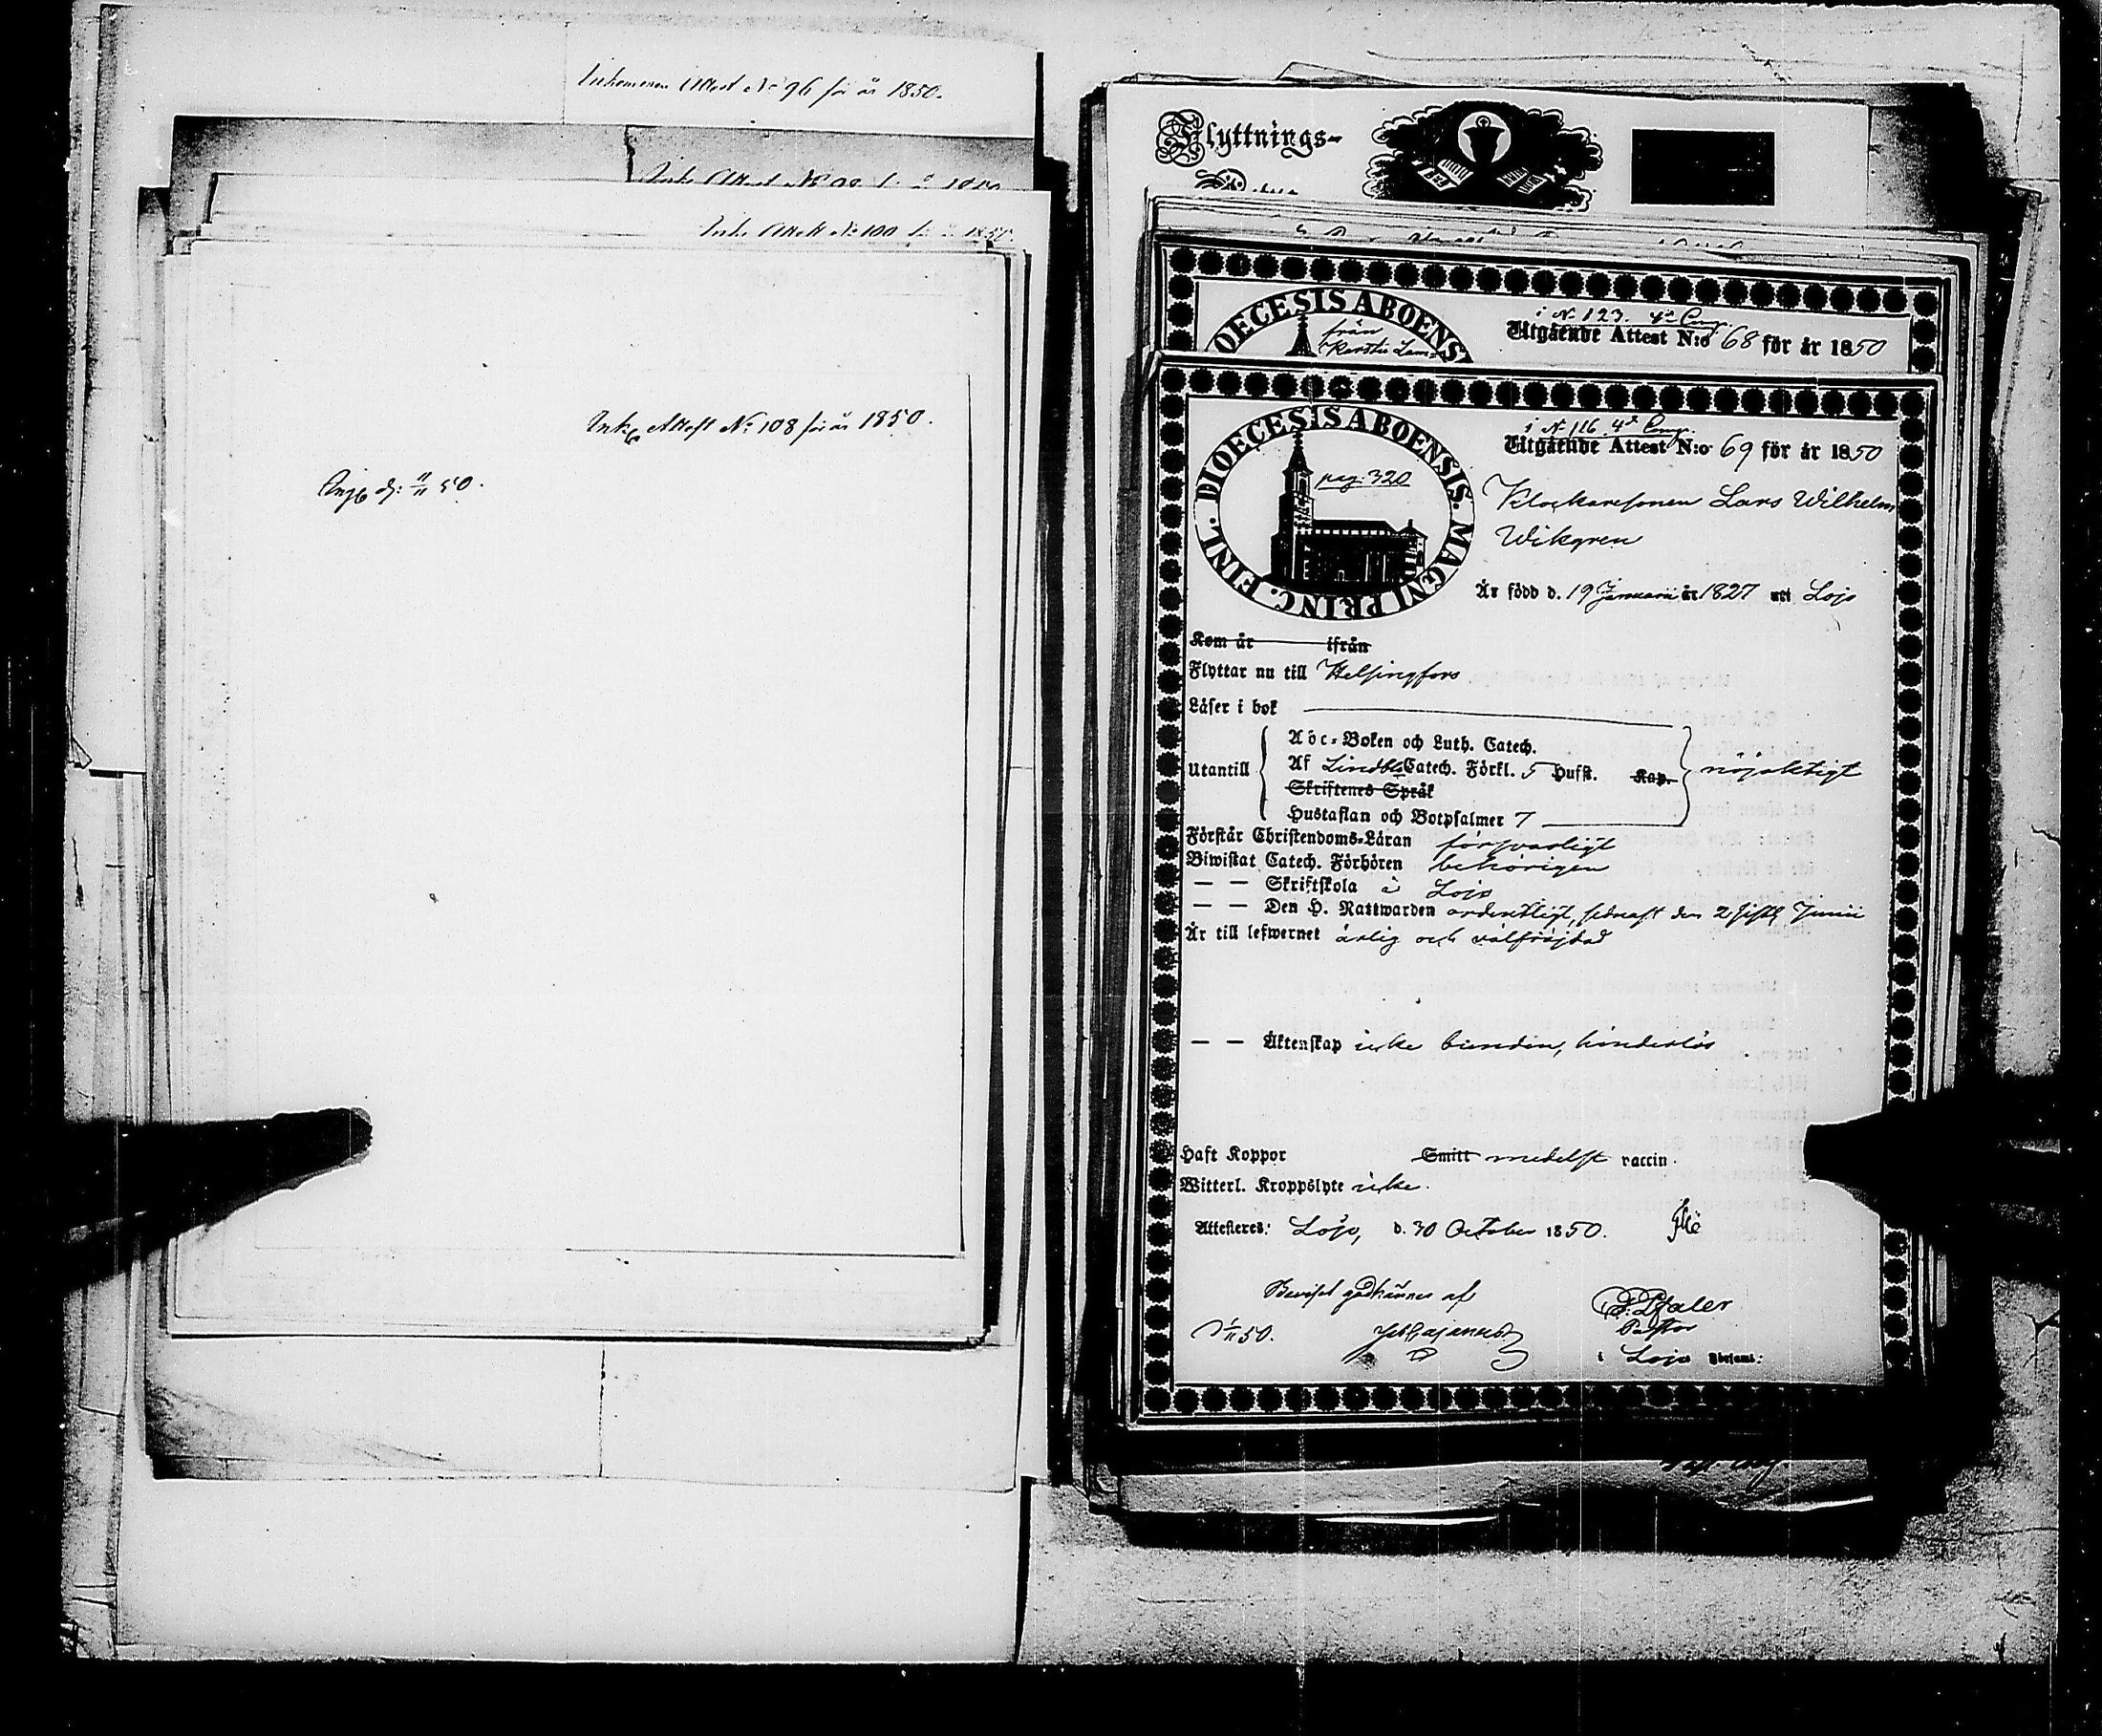 Inkommen Attest No 96 för år 1850.
Ink. Attest No 100
Ink. Attest No 108 för år 1850.
50.
Flyttnings-
DIOECESIS ABOENSIS
från
i No 123. 4de Comp.
Utgående Attest N:o 68 för år 1850
FINL. DIOECESIS ABOENSIS. MAGNI PRINC.
pag. 320
i No 116. 4de Comp.
Utgående Attest N:o 69 för år 1850
Klockaresonen Lars Wilhelm
Wikgren
Är född d. 19 Januarii år 1827 uti Lojo
Kom år ifrån
Flyttar nu till Helsingfors
Läser i bok
Utantill
Abc-Boken och Luth. Catech.
Af Lindbl. Catech. Förkl. 5 Hufst. Kap.
Skriftenes Språk
Hustaflan och Botpsalmer 7
nöjaktigt
Förstår Christendoms-Läran försvarligt
Biwistat Catech. Förhören behörigen
— — Skriftskola i Lojo
— — Den H. Nattwarden ordentligt, sednast den 2 sistl. Junii
Är till lefwernet ärlig och välfräjdad
— — Äktenskap icke bunden, hinderlös
Haft Koppor Smitt medelst vaccin.
Witterl. Kroppslyte icke.
Attesteras: Lojo, d. 30 October 1850.
Beviset godkännes af
50.
Pfaler
Pastor
i Lojo Församl: